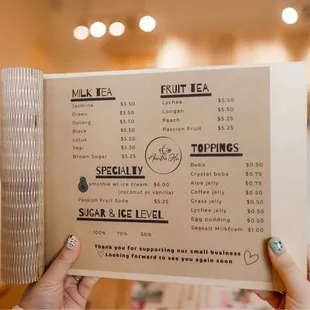 MILK TEA
Jasmine $5.50
Green $5.50
Oolong $5.50
Black $5.50
Lotus $5.50
Thai $5.50
Brown Sugar $5.25
FRUIT TEA
Lychee $5.50
Longan $5.50
Peach $5.25
Passion Fruit $5.25
SPECIALTY
smothie w/ ice cream $6.00
(coconut or vanilla)
Passion Fruit Soda $5.25
TOPPINGS
Boba $0.50
Crystal boba $0.75
Aloe jelly $0.75
Coffee jelly $0.50
Grass jelly $0.50
Lychee jelly $0.50
Egg pudding $0.50
Seasalt Milkfoam $1.00
SUGAR & ICE LEVEL
100% 70% 50%
Thank you for supporting our small business
Looking forward to see you again soon